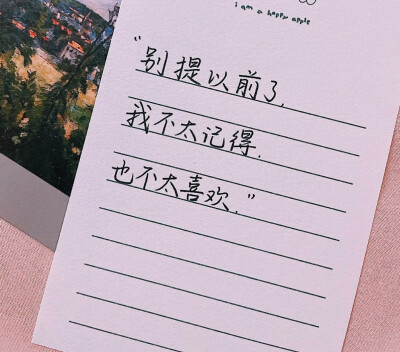 i am a happy apple
“别提以前了.
我不太记得.
也不太喜欢.”